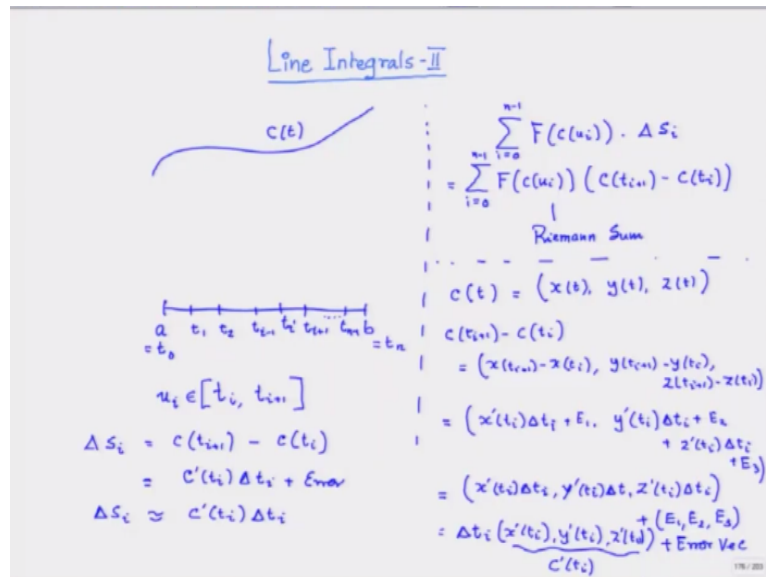 Line Integrals - II
c(t)
a t₁ t₂ tᵢ₋₁ tᵢ tᵢ₊₁ .... tₙ₋₁ b
= t₀ = tₙ
uᵢ ∈ [tᵢ, tᵢ₊₁]
Δsᵢ = c(tᵢ₊₁) - c(tᵢ)
= c'(tᵢ) Δtᵢ + Error
Δsᵢ ≈ c'(tᵢ) Δtᵢ
∑ᵢ₌₀ⁿ⁻¹ F(c(uᵢ)) · Δsᵢ
= ∑ᵢ₌₀ⁿ⁻¹ F(c(uᵢ)) (c(tᵢ₊₁) - c(tᵢ))
Riemann Sum
c(t) = (x(t), y(t), z(t))
c(tᵢ₊₁) - c(tᵢ)
= (x(tᵢ₊₁) - x(tᵢ), y(tᵢ₊₁) - y(tᵢ),
z(tᵢ₊₁) - z(tᵢ))
= (x'(tᵢ)Δtᵢ + E₁, y'(tᵢ)Δtᵢ + E₂
+ z'(tᵢ)Δtᵢ
+ E₃)
= (x'(tᵢ)Δtᵢ, y'(tᵢ)Δt, z'(tᵢ)Δtᵢ)
+ (E₁, E₂, E₃)
= Δtᵢ (x'(tᵢ), y'(tᵢ), z'(tᵢ)) + Error Vec
c'(tᵢ)